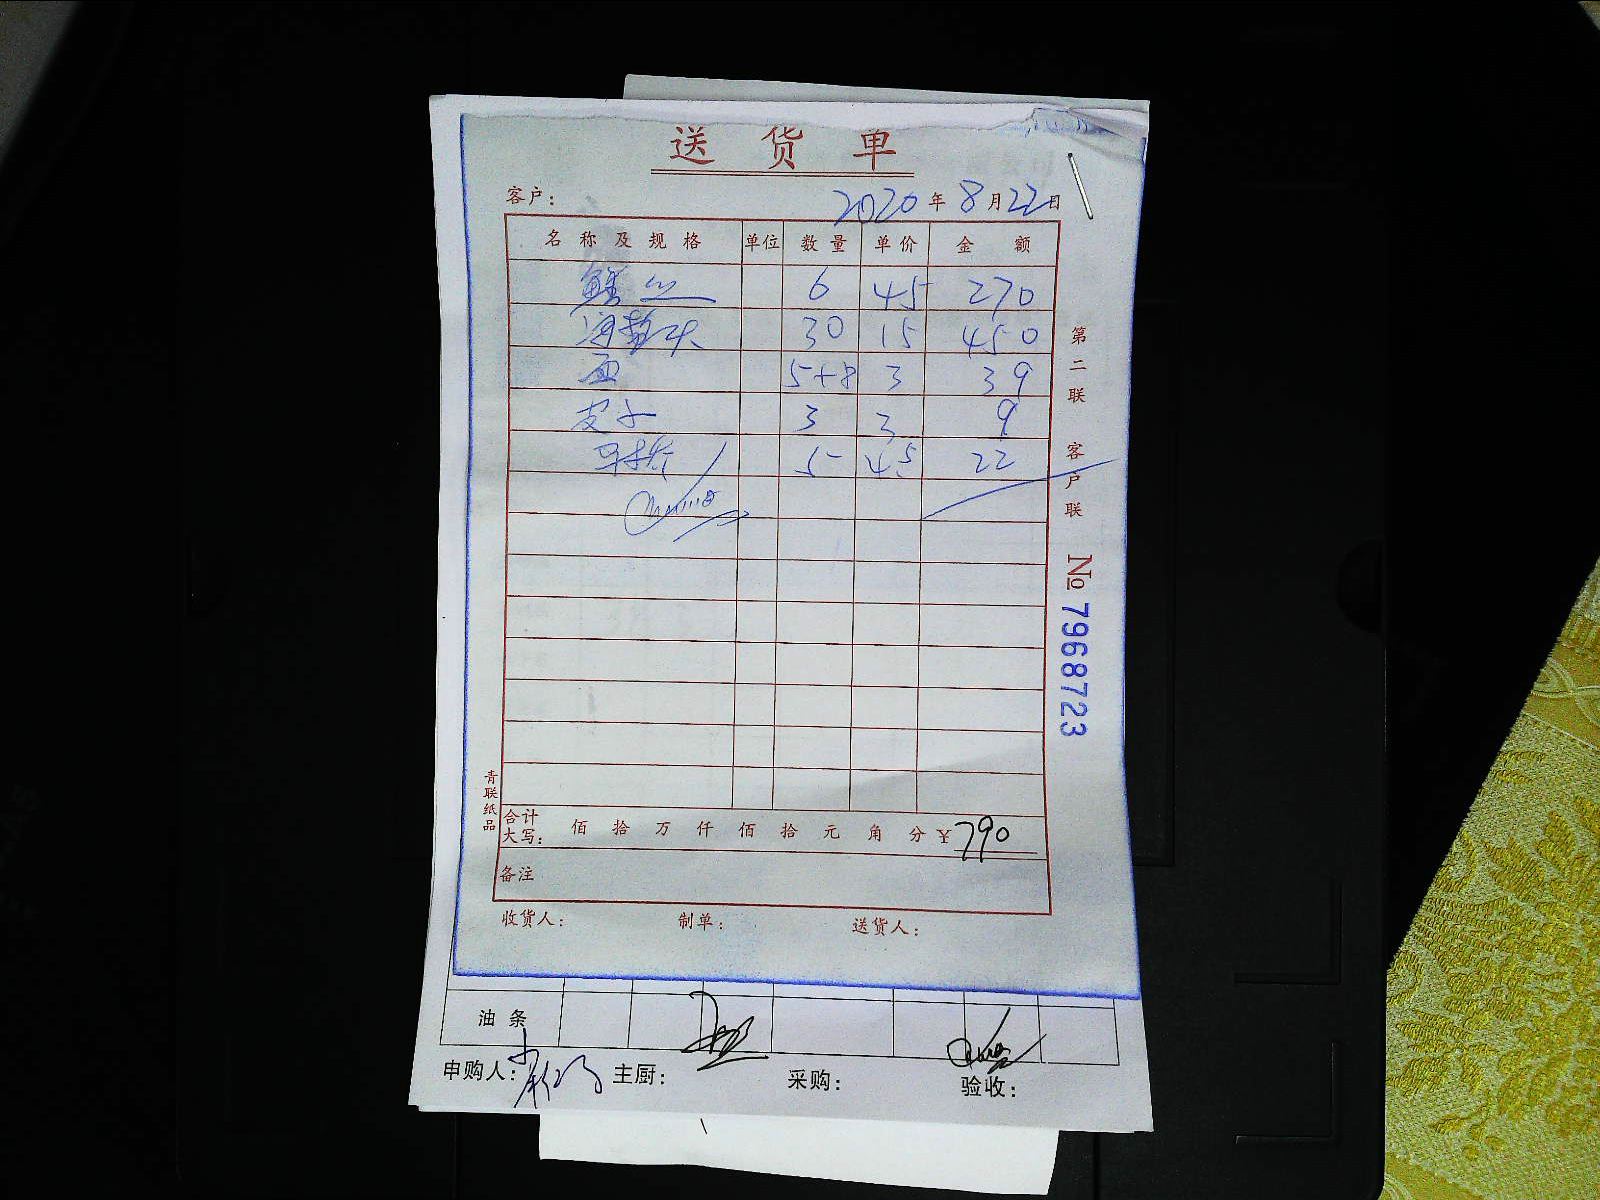 送货单
客户： 2020年8月22日
名称及规格 单位 数量 单价 金额
鳝丝 6 45 270
海蜇头 30 15 450
面 5+8 3 39
皮子 3 3 9
5 4.5 22
第二联 客户联
№ 7968723
青联纸品
合计大写： 佰 拾 万 仟 佰 拾 元 角 分 ¥790
备注
收货人： 制单： 送货人：
油条
申购人： 主厨： 采购： 验收：